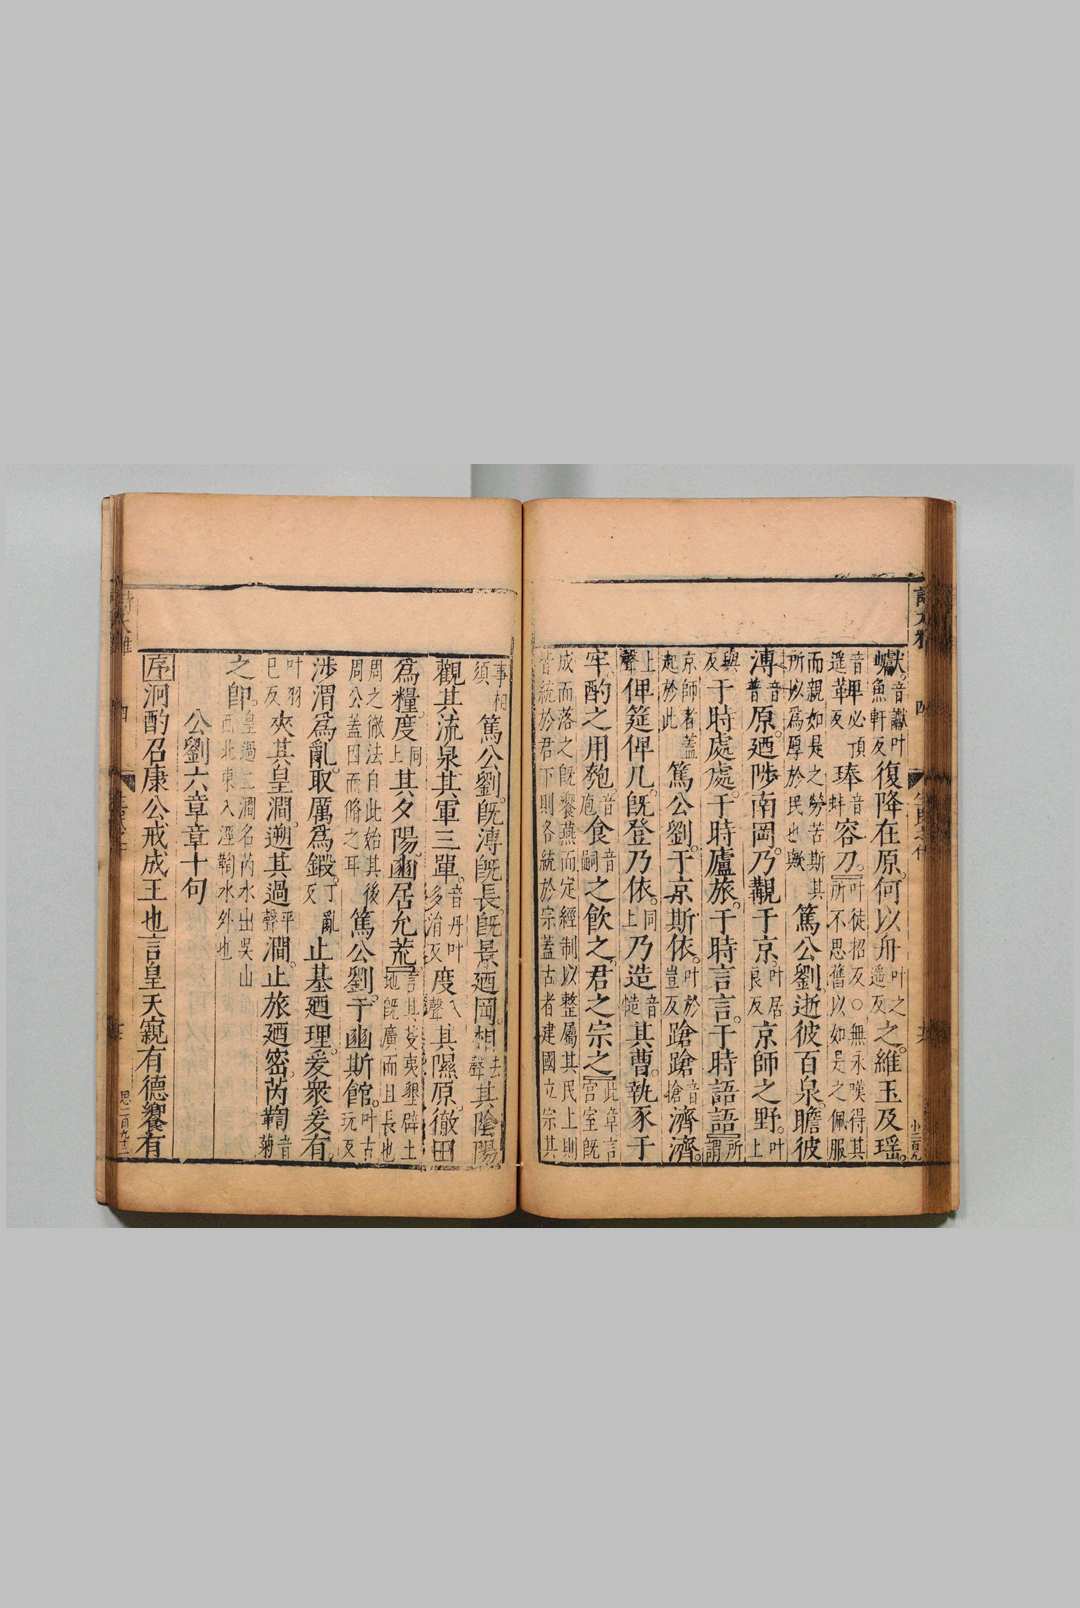 巘。音讞叶魚軒反復降在原。何以舟叶之遙反之。維玉及瑤。
琫音蚌容刀。叶徒招反○無永嘆得其所不思舊以如是之佩服
而親如是之勞苦斯其所以爲厚於民也歟篤公劉逝彼百泉瞻彼
溥音普原。廼陟南岡。乃覯于京。叶居良反京師之野。叶上
與反于時處處。于時廬旅。于時言言。于時語語。所謂
京師者蓋起於此篤公劉。于京斯依。叶於豈反蹌蹌音搶濟濟。
上聲俾筵俾几。既登乃依。同上乃造音慥其曹。執豕于
牢酌之用匏音庖食音嗣之飲之君之宗之此章言宮室既
成而落之既饗燕而定經制以整屬其民上則皆統於君下則各統於宗蓋古者建國立宗其
事相須篤公劉。既溥既長。既景廼岡。相去聲其陰陽
觀其流泉其軍三單。音丹叶多涓反度入聲其隰原。徹田
爲糧。度同上其夕陽。豳居允荒言其芟夷墾辟土地既廣而且長也
周之徹法自此始其後周公蓋因而脩之耳篤公劉。于豳斯館。叶古玩反
涉渭爲亂。取厲爲鍛。丁亂反止基廼理。爰衆爰有
叶羽已反夾其皇澗。遡其過平聲澗。止旅廼密。芮鞫音菊
之卽。皇過二澗名芮水出吳山西北東入涇鞫水外也
公劉六章章十句
序泂酌召康公戒成王也言皇天寴有德饗有